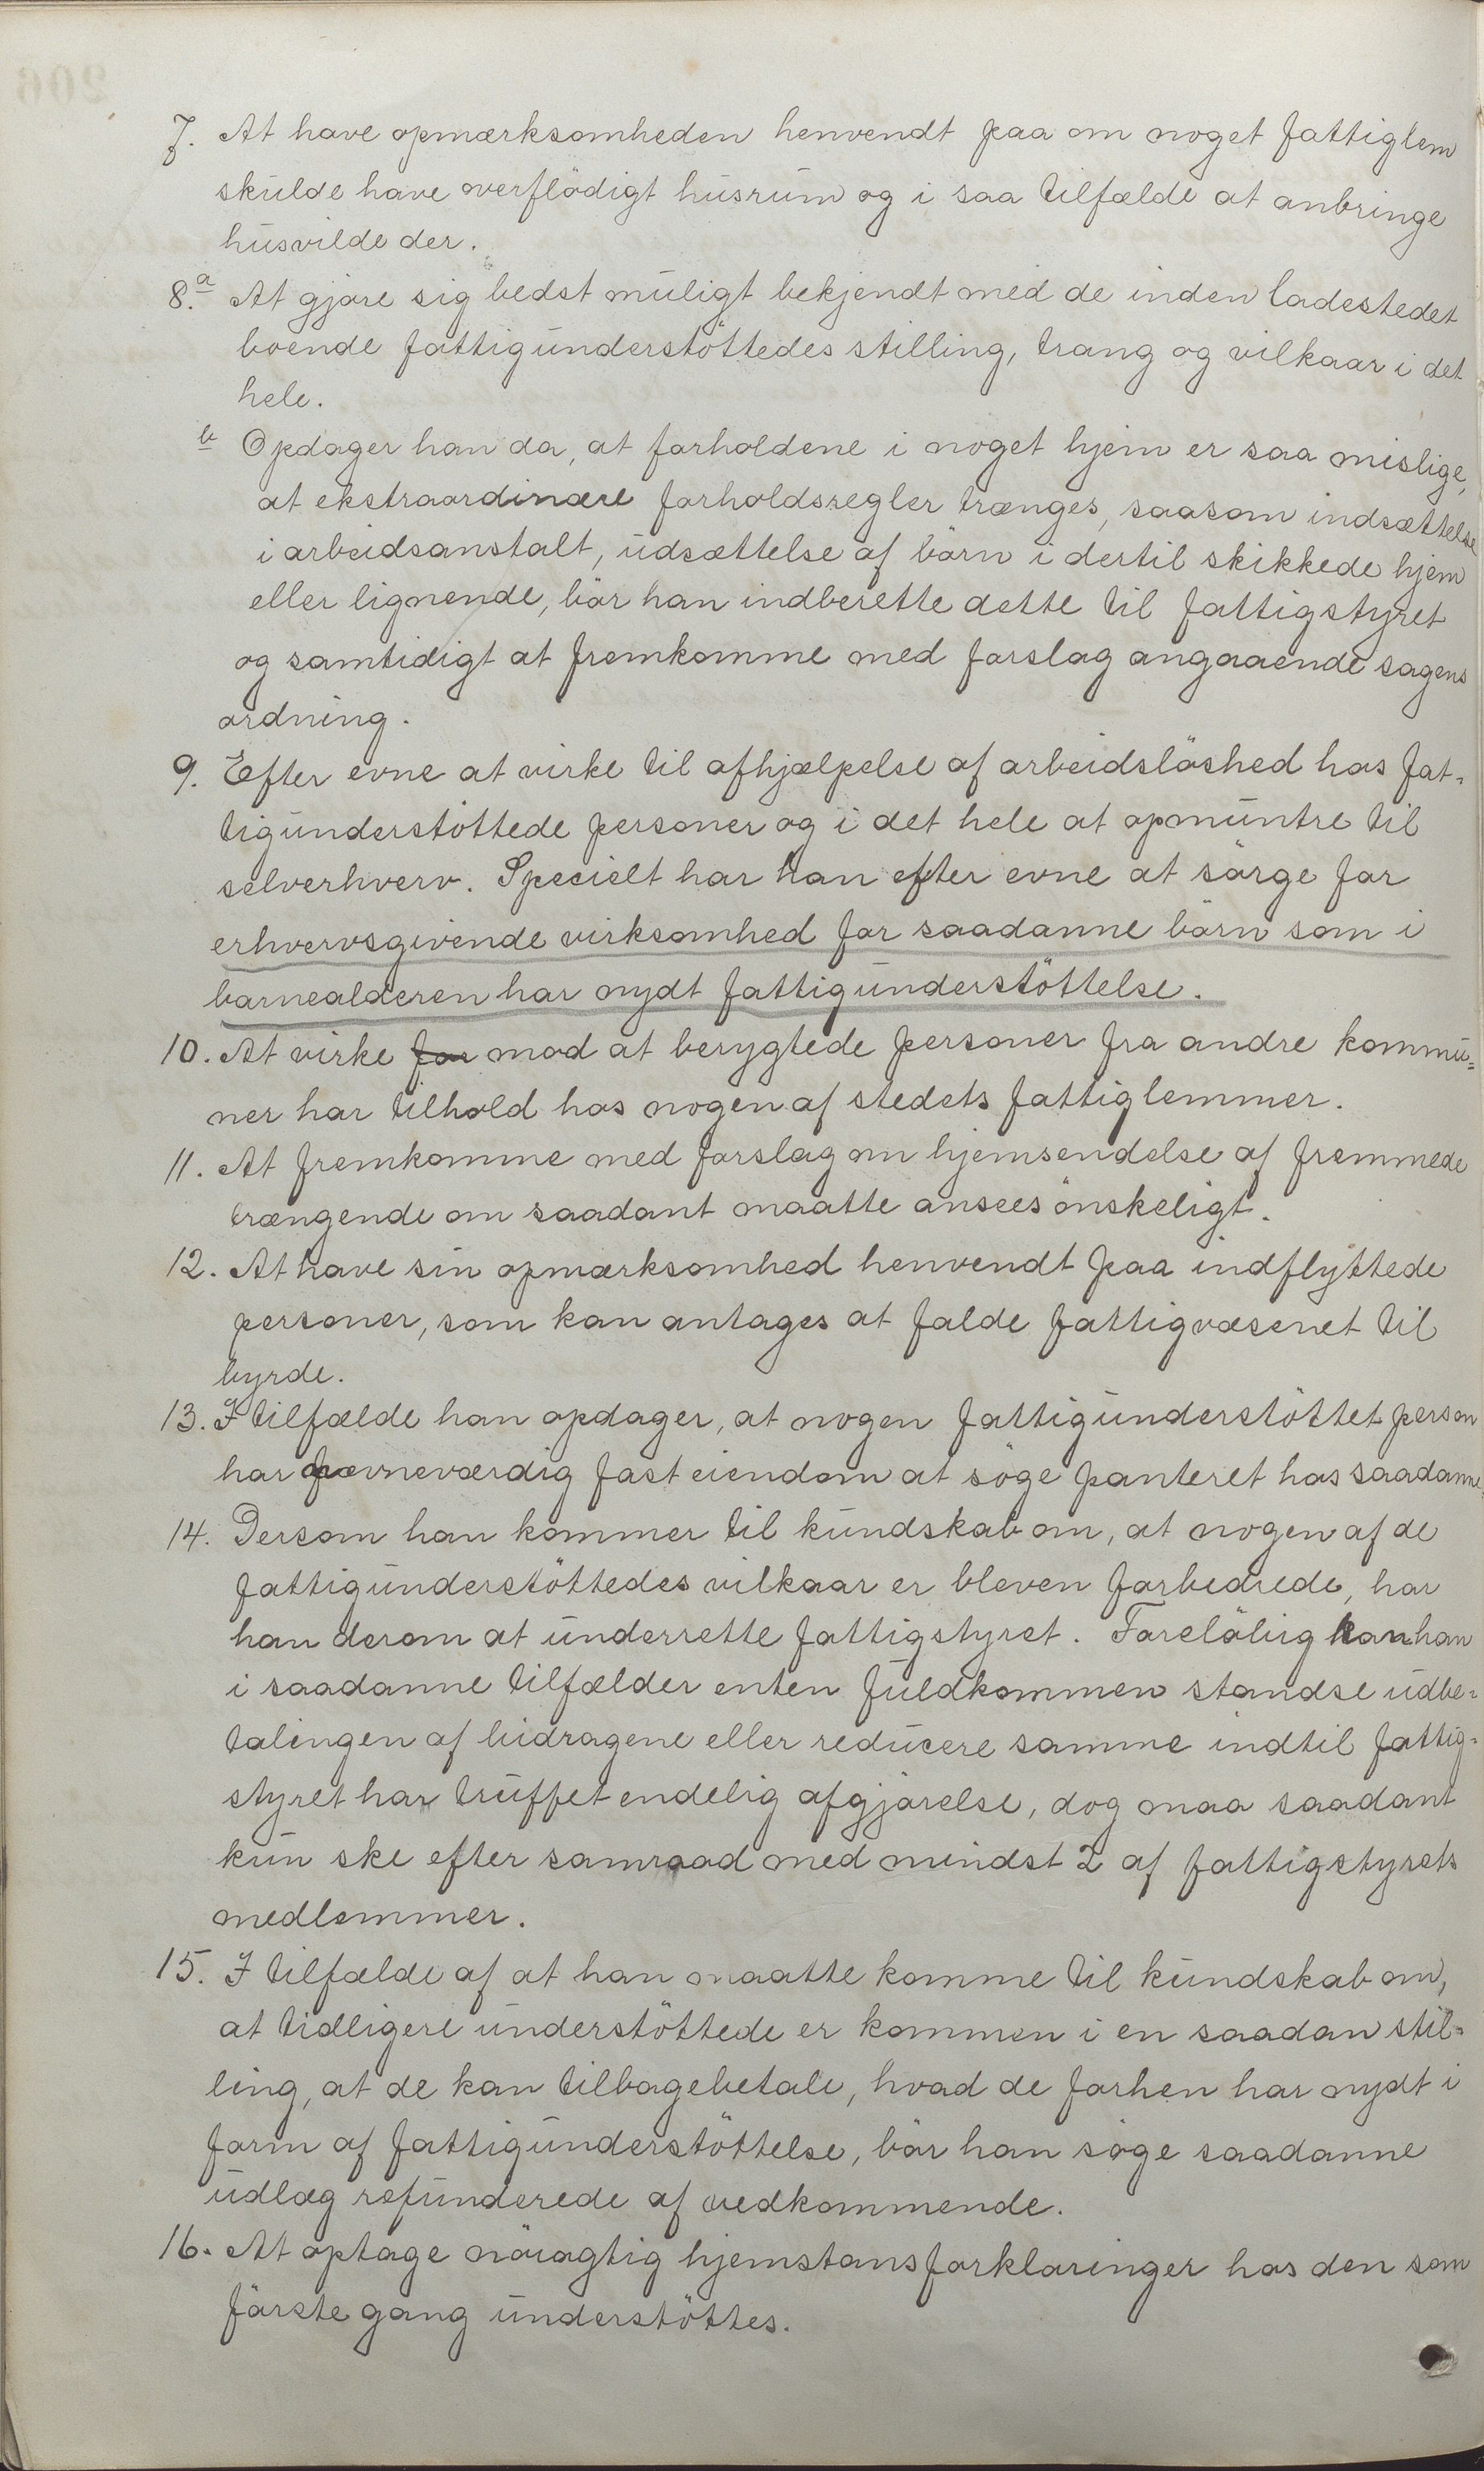 7. At have opmærksomheden henvendt paa om noget fattiglem
skulde have overflödigt husrum og i saa tilfælde at anbringe
husvilde der.
8.a At gjöre sig bedst muligt bekjendt med de inden ladestedet
boende fattigunderstöttedes stilling, trang og vilkaar i det
hele.
b Opdager han da, at forholdene i noget hjem er saa mislige,
at ekstraordinære forholdsregler trænges, saasom indsættelse
i arbeidsanstalt, udsættelse af börn i dertil skikkede hjem
eller lignende, bör han indberette dette til fattigstyret
og samtidigt at fremkomme med forslag angaaende sagens
ordning.
9. Efter evne at virke til afhjælpelse af arbeidslöshed hos fat=
tigunderstöttede personer og i det hele at opmuntre til
selverhverv. Specielt har han efter evne at sörge for
erhvervsgivende virksomhed for saadanne börn som i
barnealderen har nydt fattigunderstöttelse.
10. At virke for mod at berygtede personer fra andre kommu=
ner har tilhold hos nogen af stedets fattiglemmer.
11. At fremkomme med forslag om hjemsendelse af fremmede
trængende om saadant maatte ansees önskeligt.
12. At have sin opmærksomhed henvendt paa indflyttede
personer, som kan antages at falde fattigvæsenet til
byrde.
13. I tilfælde han opdager, at nogen fattigunderstöttet person
har nævneværdig fast eiendom at söge panteret hos saadanne.
14. Dersom han kommer til kundskab om, at nogen af de
fattigunderstöttedes vilkaar er bleven forbedrede, har
han derom at underrette fattigstyret. Forelöbig kan han
i saadanne tilfælder enten fuldkommen standse udbe=
talingen af bidragene eller reducere samme indtil fattig=
styret har truffet endelig afgjörelse, dog maa saadant
kun ske efter samraad med mindst 2 af fattigstyrets
medlemmer.
15. I tilfælde af at han maatte komme til kundskab om,
at tidligere understöttede er kommen i en saadan stil=
ling, at de kan tilbagebetale, hvad de forhen har nydt i
form af fattigunderstöttelse, bör han söge saadanne
udlæg refunderede af vedkommende.
16. At optage nöiagtig hjemstansforklaringer hos den som
förste gang understöttes.